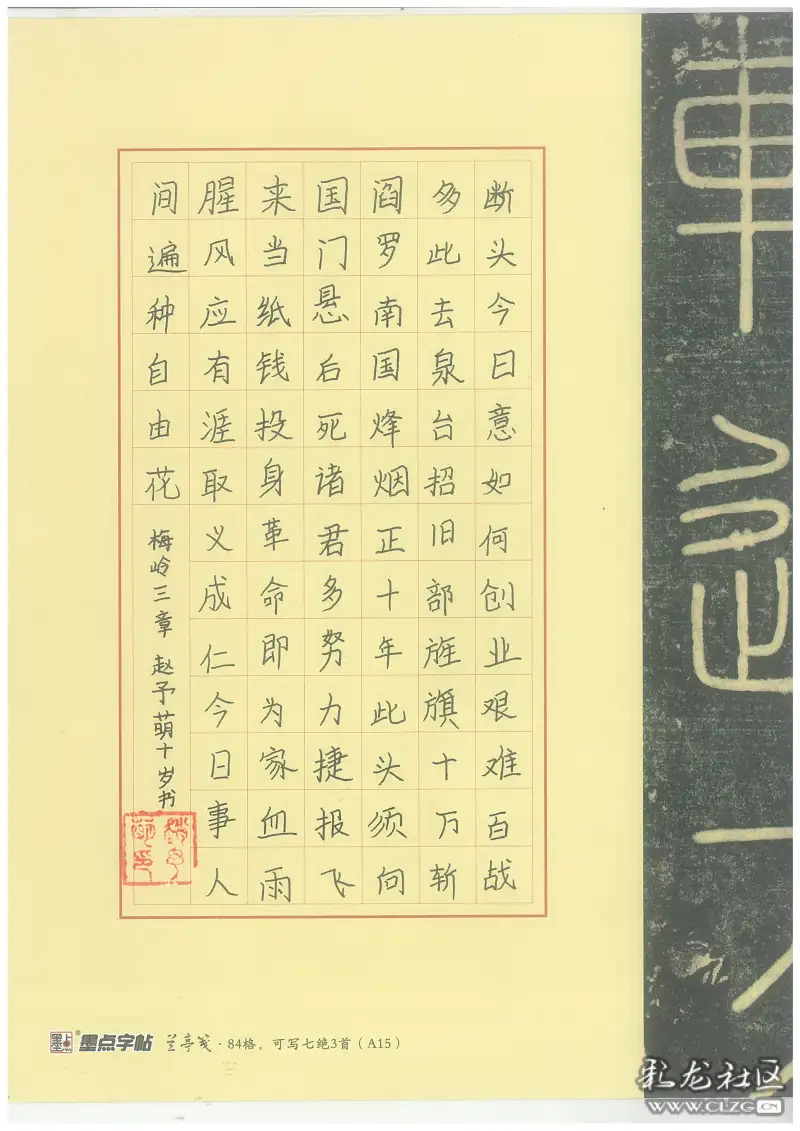 断头今日意如何创业艰难百战
多此去泉台招旧部旌旗十万斩
阎罗南国烽烟正十年此头须向
国门悬后死诸君多努力捷报飞
来当纸钱投身革命即为家血雨
腥风应有涯取义成仁今日事人
间遍种自由花 梅岭三章 赵予萌十岁书
赵予萌印
墨点字帖 兰亭笺·84格，可写七绝3首（A15）
彩龙社区
www.CLZG.CN